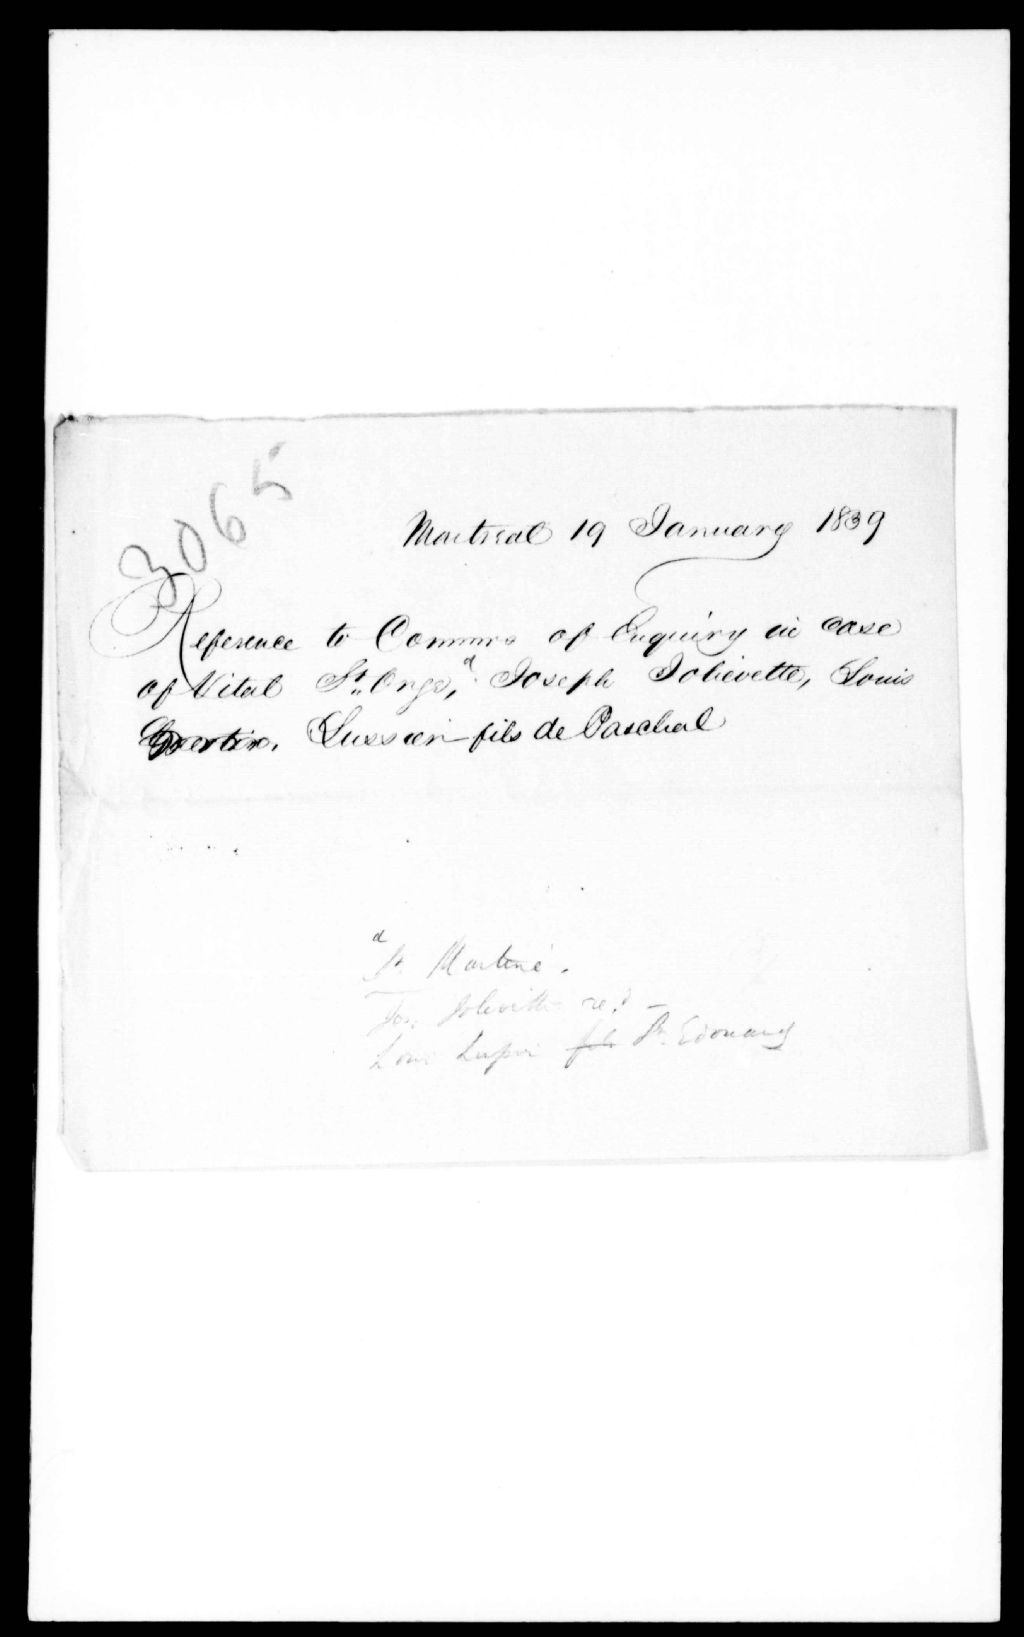 3065
Montreal 19 January 1839
Reference to Commrs of Enquiry in case
of Vital St. Onge, d Joseph Jolievette, Louis
Lussier fils de Paschal
d
St. Martine.
Jos Jolivette
Louis Lussier fils St. Edouard